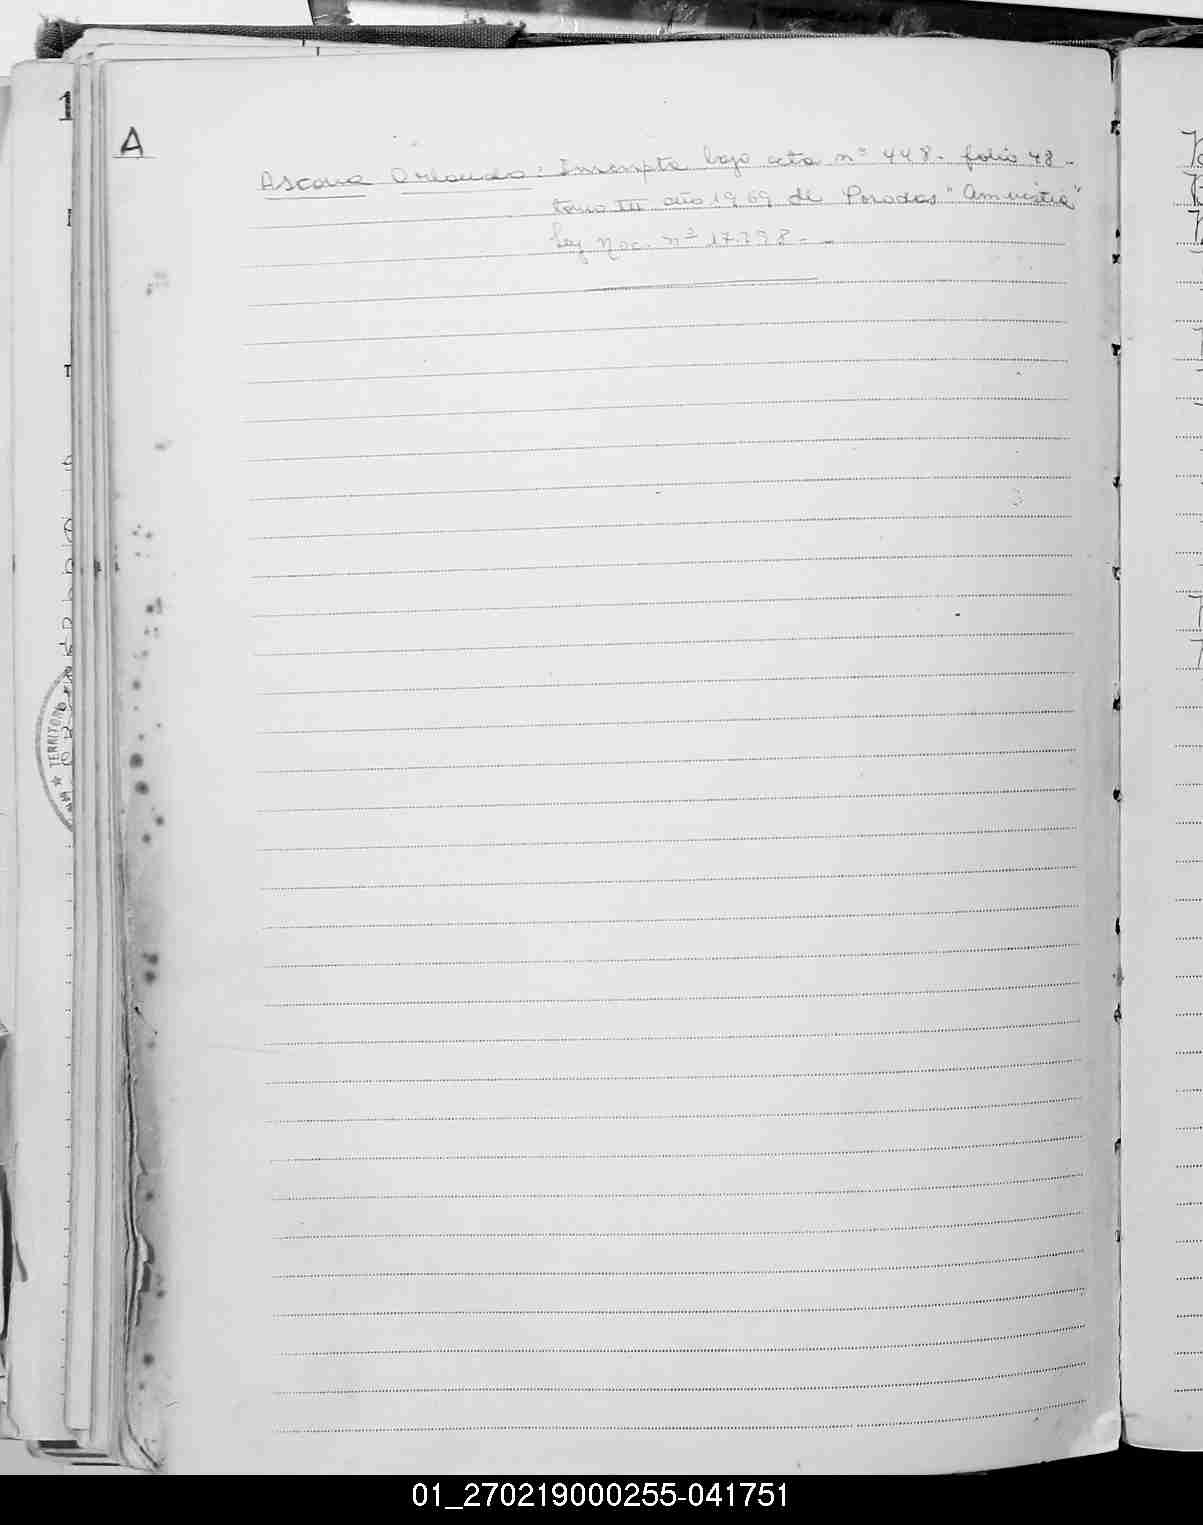 A
Ascona Orlando: Inscripta bajo acta nº 448. folio 48.
tomo III año 1969 de Posadas "Amnistia"
Ley Nac. nº
TERRITOR
01_270219000255-041751